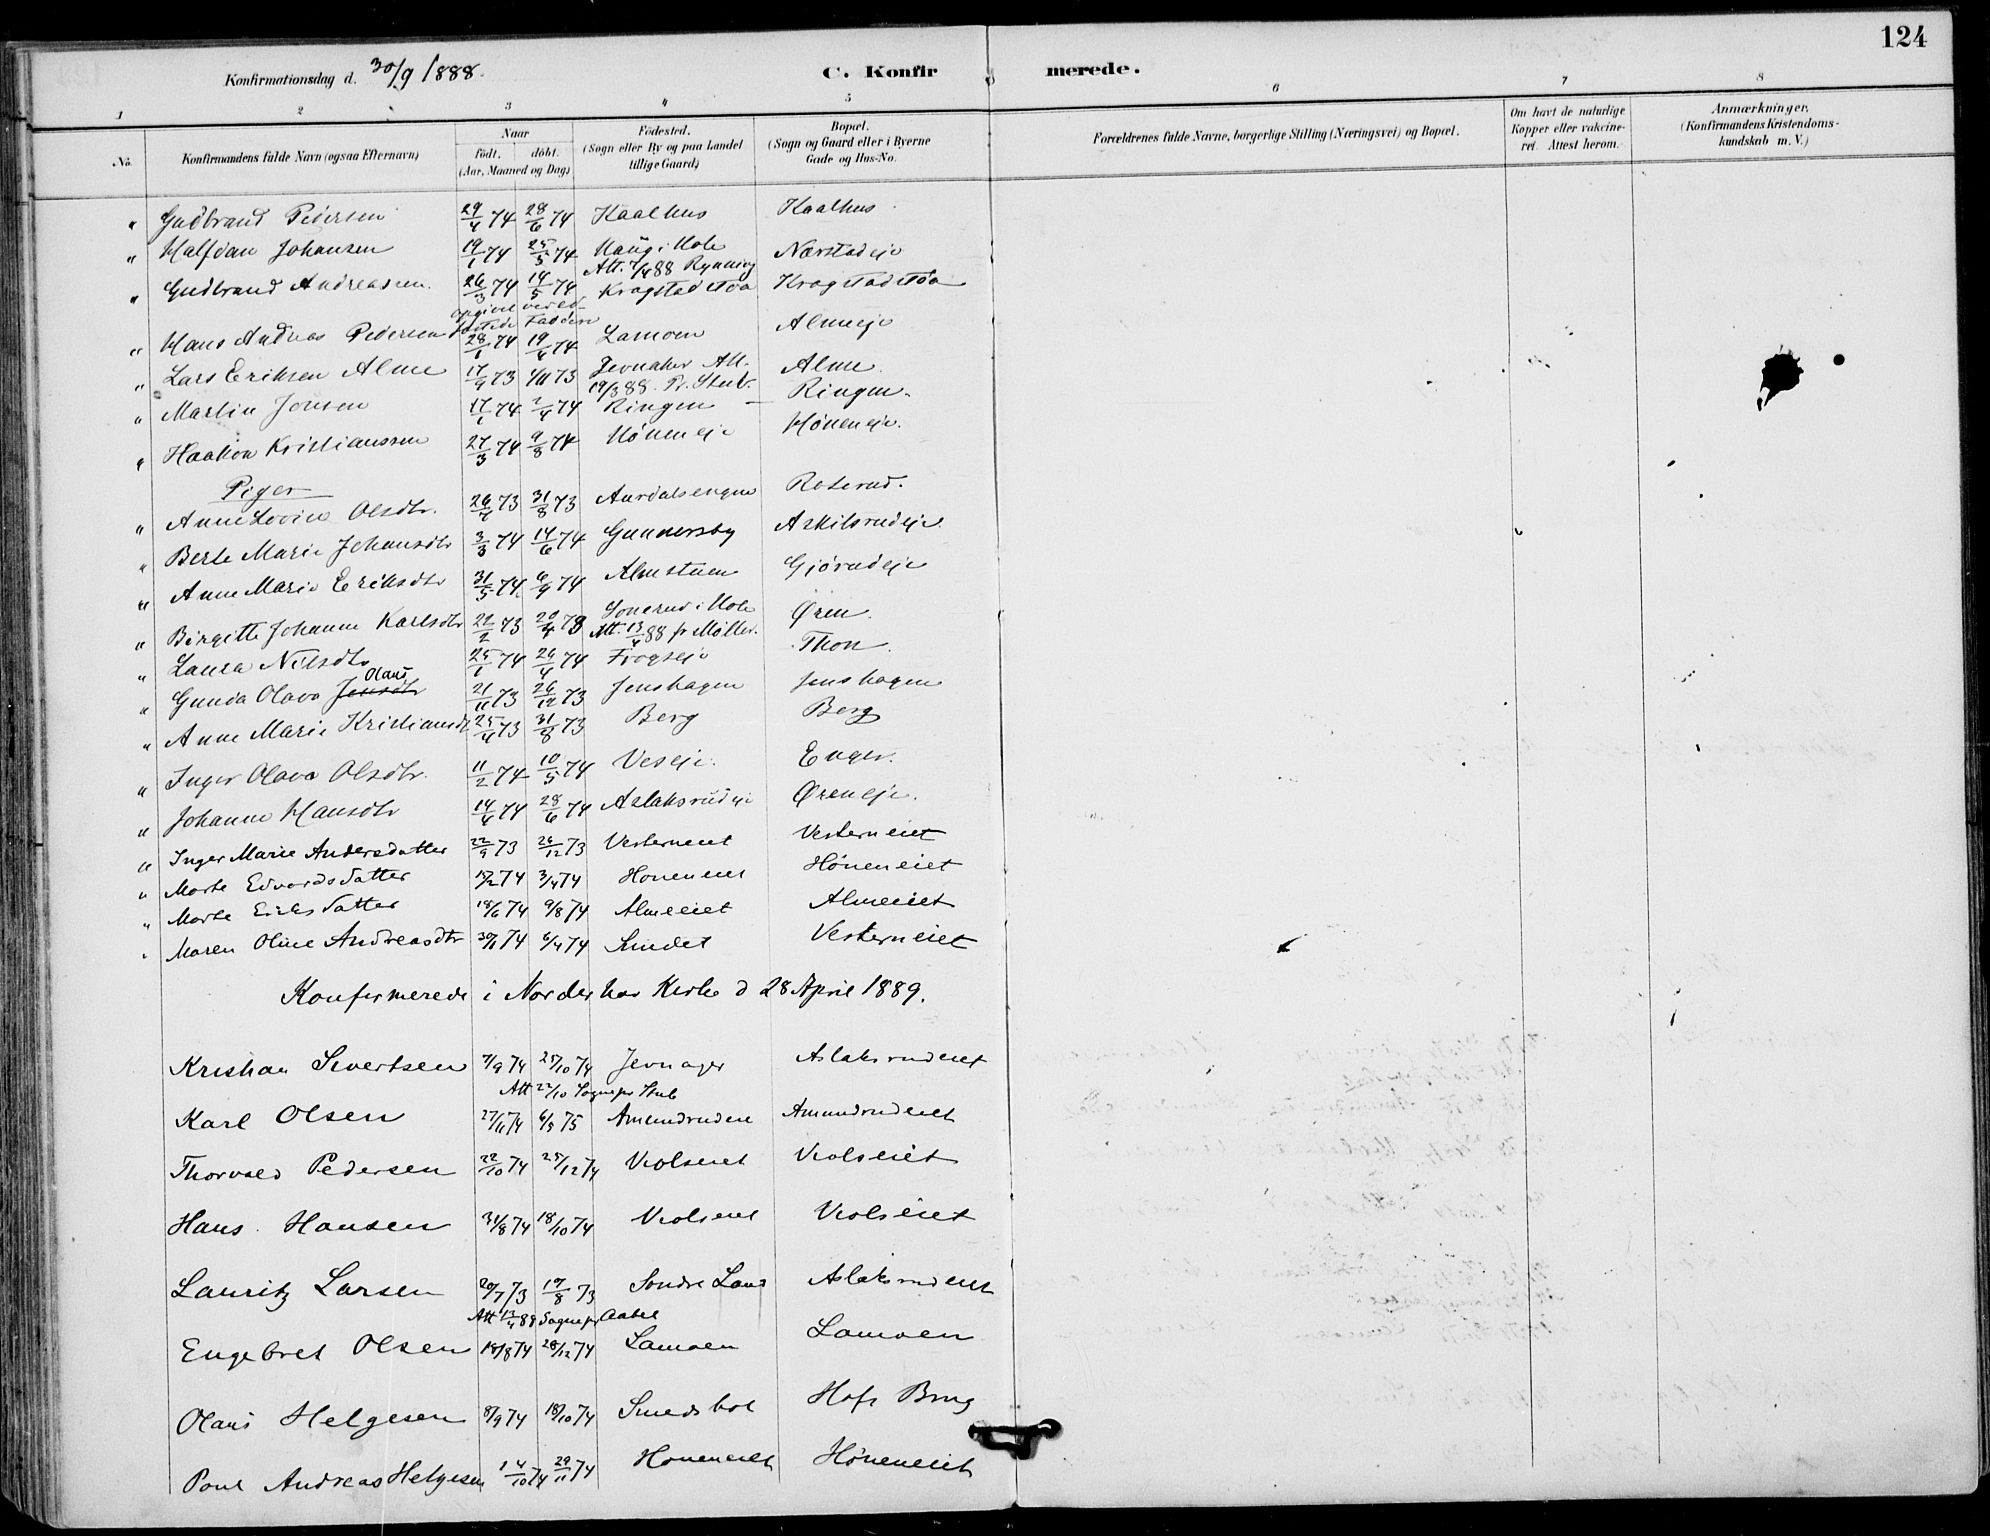 124
Konfirmationsdag d. 30/9 1888. C. Konfirmerede.
1 2 3 4 5 6 7 8
No. Konfirmandens fulde Navn (ogsaa Efternavn) Naar født. døbt. (Aar, Maaned og Dag) Fødested. (Sogn eller By og paa Landet tillige Gaard) Bopæl. (Sogn og Gaard eller i Byerne Gade og Hus-No. Forældrenes fulde Navne, borgerlige Stilling (Næringsvei) og Bopæl. Om havt de naturlige Kopper eller vakcineret. Attest herom. Anmærkninger. (Konfirmandens Kristendomskundskab m. V.)
" Gudbrand Pedersen 29/4 74 28/6 74 Kaalhus Kaalhus
" Halfdan Johansen 19/1 74 25/5 74 Haug i Hole Nærstadeje
Att. 7/4 88 Rynning
" Gudbrand Andreassen 26/3 74 14/5 74 Kragstadstøa Kragstadstøa
opgivet ved
" Hans Andreas Pedersen 28/1 74 19/4 74 Lamoen Almeeje
" Lars Eriksen Alme 17/9 73 1/11 73 Jevnaker Att. Alme
19/3 88. Pr. Stub.
" Martin Jensen 17/1 74 2/4 74 Ringen Ringen
" Haakon Kristianssen 27/3 74 9/8 74 Hønen eje Hønen eje
Piger
" Anne Lovise Olsdtr. 26/7 73 31/8 73 Aurdalsengen Roserud.
" Berte Marie Johansdtr 3/3 74 14/6 74 Gunnersby Askilsrudeje
" Anne Marie Eriksdtr 31/5 74 6/9 74 Almstuen Gjørudeje
" Birgitte Johanne Karlsdtr 22/2 73 20/4 73 Sonerud i Hole Øren
Att. 13/4 88 pr Møller.
" Laura Nilsdtr 25/1 74 26/4 74 Frogseje Thon
Olaus
" Gunda Olava Jensdtr 21/11 73 26/12 73 Jenshagen Jenshagen
" Anne Marie Kristiansdtr 25/4 73 31/8 73 Berg Berg
" Inger Olava Olsdtr. 11/2 74 10/5 74 Veseje Enger.
" Johanne Hansdtr 14/4 74 28/6 74 Aslaksrudeje Øreneje.
" Inger Marie Andersdatter 22/9 73 26/12 73 Vesterneiet Vesterneiet
" Marte Edvardsdatter 15/2 74 3/4 74 Høneneiet Høneneiet
" Marte Eriksdatter 18/6 74 9/8 74 Almeeiet Almeeiet
" Maren Oline Andreasdtr 30/1 74 6/4 74 Vesterneiet
Konfirmerede i Norderhov Kirke d 28 April 1889.
Kristian Sivertsen 7/9 74 25/10 74 Jevnager Aslaksrudeiet
Att 22/10 Sognepr Stub
Karl Olsen 27/11 74 6/3 75 Amundrudeie Amundrudeiet
Thorvald Pedersen 22/10 74 25/12 74 Violseiet Violseiet
Hans Hansen 31/8 74 18/10 74 Violseiet Violseiet
Lauritz Larsen 20/7 73 17/8 73 Søndre Land Aslaksrudeiet
Att 13/4 88 Sognepr Aabel
Engebret Olsen 18/8 74 28/12 74 Lamoen Lamoen
Olaus Helgesen 8/9 74 18/10 74 Smedsbøl Hofs Brug
Poul Andreas Helgesen 14/10 74 29/11 74 Høneneiet Høneneiet